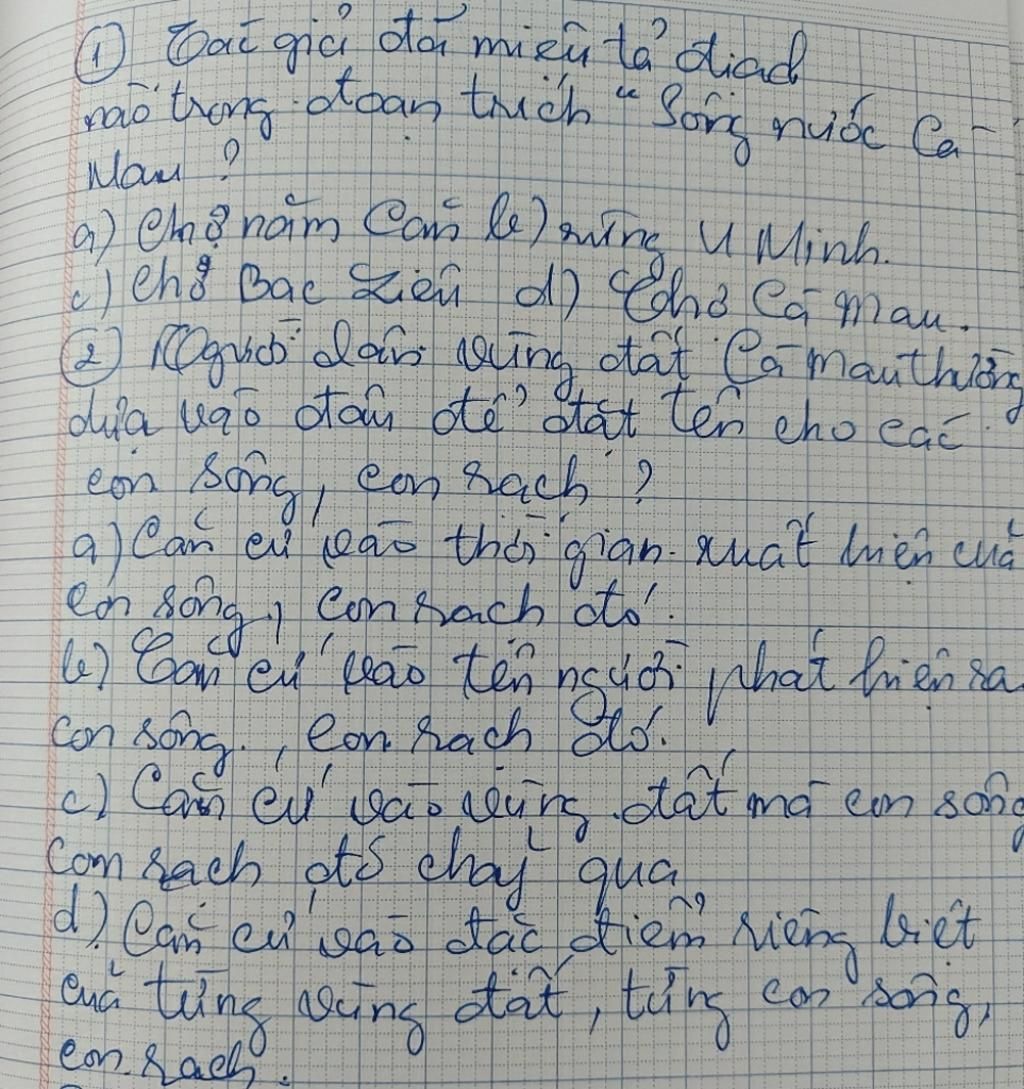 ① Tác giả đã miêu tả địa d
nào trong đoạn trích "Sông nước Cà
Mau ?
a) Chợ năm Căn b) rừng U Minh.
c) chợ Bạc Liêu d) Chợ Cà mau.
② Người dân vùng đất Cà mau thường
dựa vào đâu để đặt tên cho các
con sông, con rạch ?
a) Căn cứ vào thời gian xuất hiện của
con sông, con rạch đó.
b) Căn cứ vào tên người phát hiện ra
con sông, con rạch đó.
c) Căn cứ vào vùng đất mà con sông
con rạch đó chảy qua
d) Căn cứ vào đặc điểm riêng biệt
của từng vùng đất, từng con sông,
con rạch.